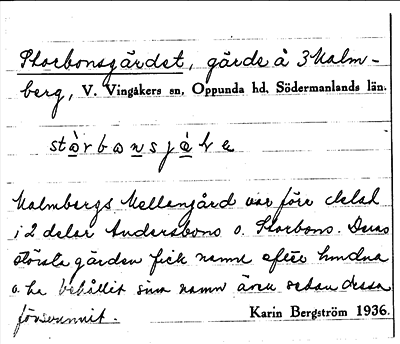 Storbonsgärdet, gärde å 3 Malm-
berg, V. Vingåkers sn, Oppunda hd, Södermanlands län.
Malmbergs Mellangård var förr delad
i 2 delar Andersbons o. Storbons. Deras
största gärden fick namn efter bondna
o. ha behållit sina namn även sedan dessa
försvunnit.
Karin Bergström 1936.